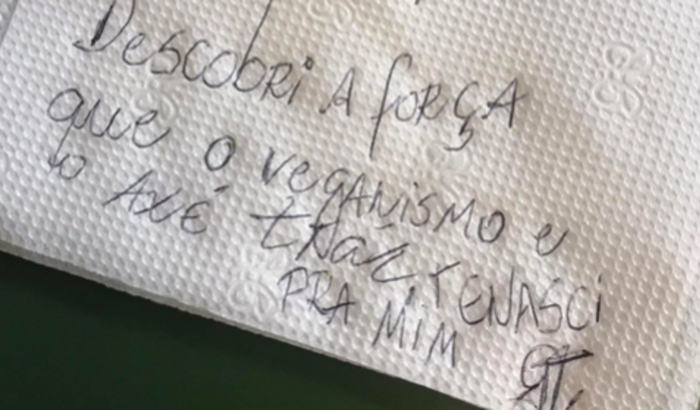 Descobri A forÇA
que o veganismo e
o AXÉ traz renasci
PRA MIM